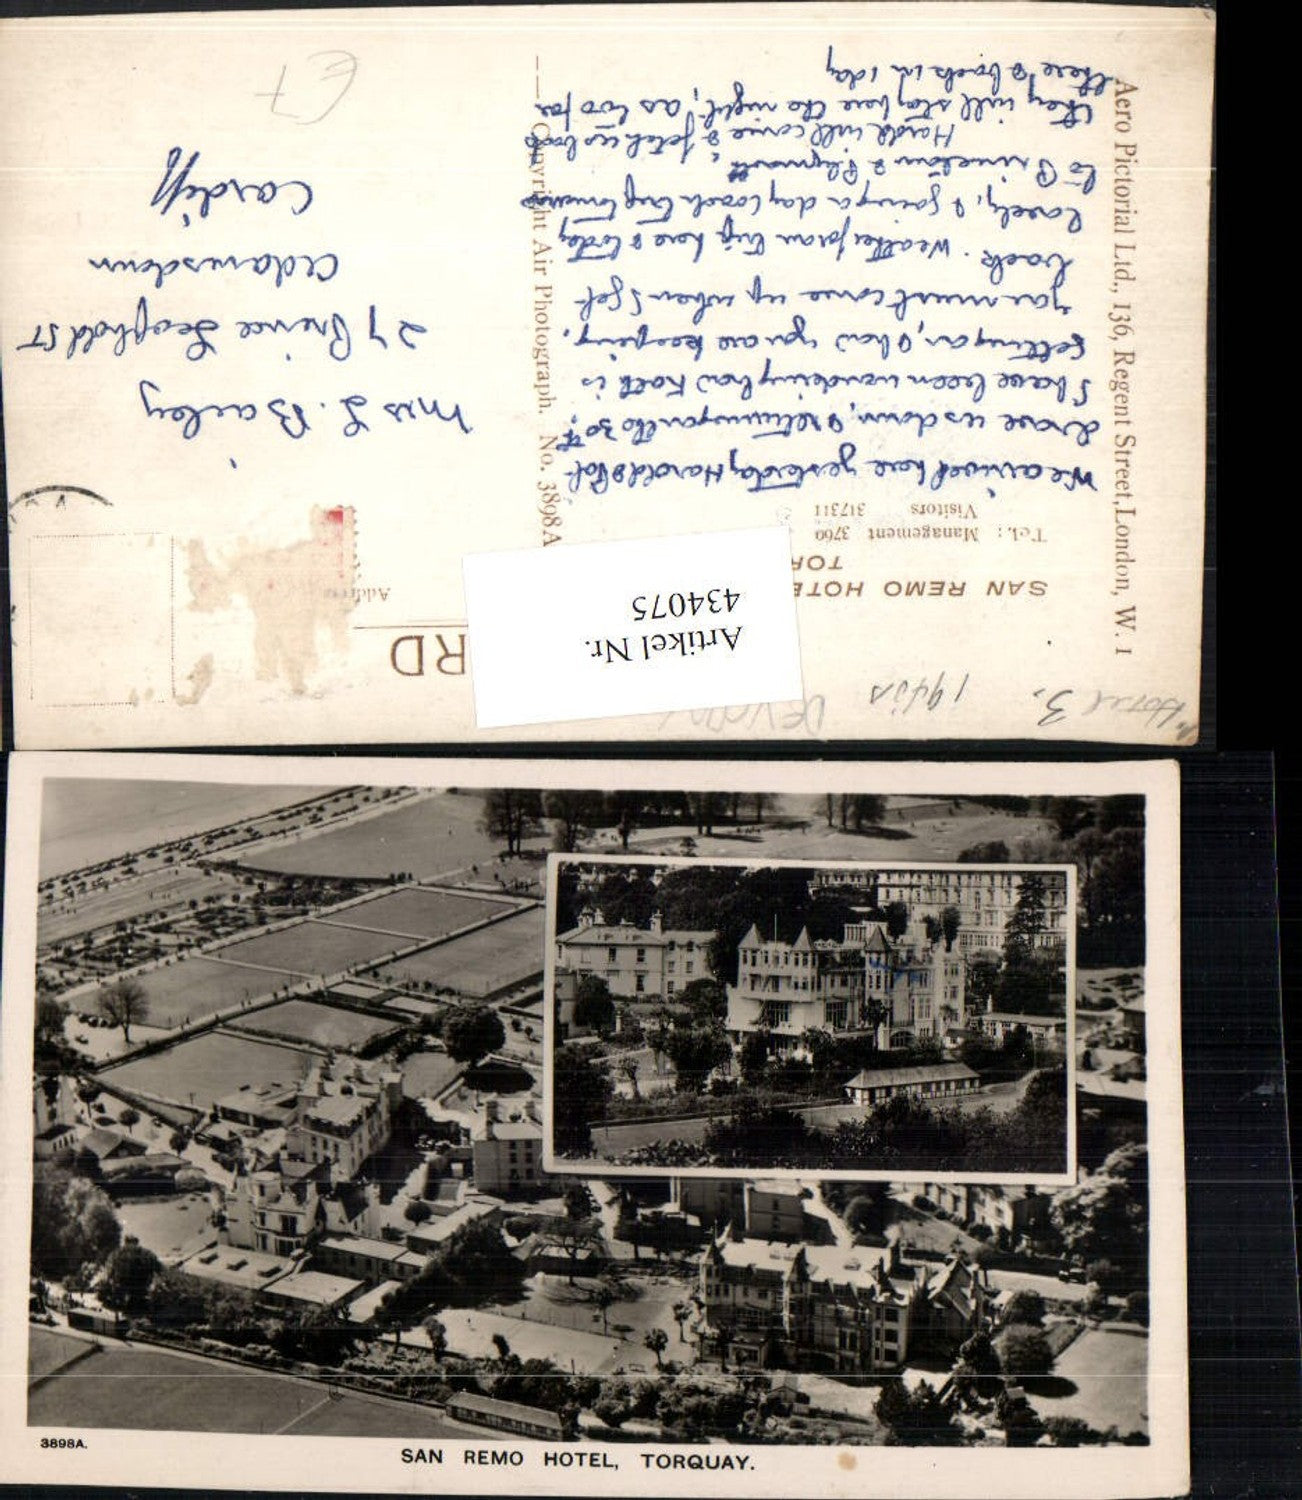 Hotel 3.
1940s
DEVON
SAN REMO HOTE
TOR
Tel.: Management 3760
Visitors 317311
RD
Address
Artikel Nr.
434075
We arrived here yesterday Harold &
drove us down, & returning on the 30th.
I have been wondering how Kath is
getting on, & how you are keeping.
You must come up when I get
back. Weather for our trip here & today
lovely, & going a day coach trip tomorrow
to Princetown & Plymouth.
Harold will come & fetch us back
they will stay here the night, as too far
there & back in 1 day
Mrs L. Bailey
27 Prince Leophold St
Adamsdown
Cardiff
£7
Copyright Air Photograph. No. 3898A
Aero Pictorial Ltd., 136, Regent Street, London, W. 1
3898A.
SAN REMO HOTEL, TORQUAY.